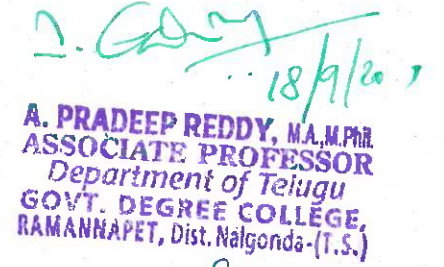 18/9/20
A. PRADEEP REDDY, M.A.,M.Phil.
ASSOCIATE PROFESSOR
Department of Telugu
GOVT. DEGREE COLLEGE,
RAMANNAPET, Dist. Nalgonda-(T.S.)